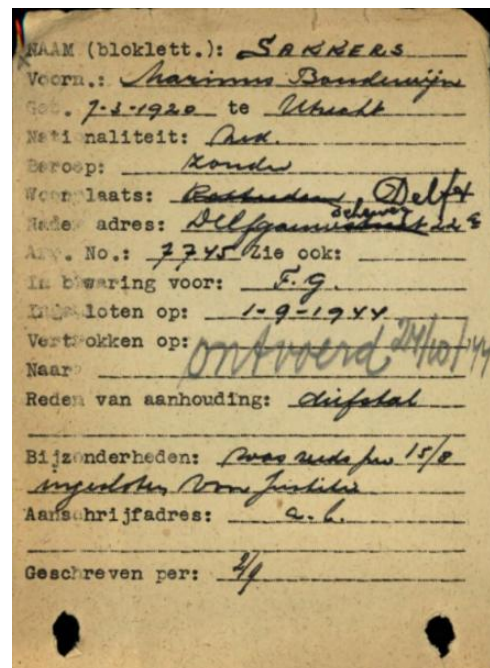 NAAM (bloklett.): SAKKERS
Voorn.: Marinus Boudewijn
Geb. 7-3-1920 te Utrecht
Nationaliteit: Ned.
Beroep: zonder
Woonplaats: Rotterdam Delft
Nader adres: Delfgauwstraat scheweg 22
Arr. No.: 7745 Zie ook:
In bewaring voor: F.G.
Ingesloten op: 1-9-1944
Vertrokken op: ontvoerd 24/10/'44
Naar
Reden van aanhouding: diefstal
Bijzonderheden: was reeds per 15/8
ingesloten voor Justitie
Aanschrijfadres: a.b.
Geschreven per: 2/9